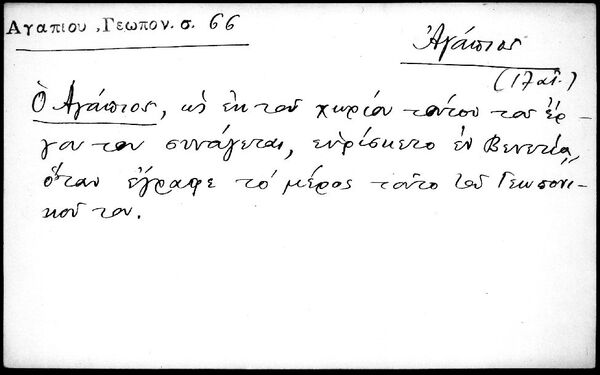 Αγαπιου ,Γεωπον. σ. 66
Ἀγάπιος
(17 αἰ.)
Ὁ Ἀγάπιος, ὡς ἐκ τοῦ χωρίου τούτου τοῦ ἔρ-
γου του συνάγεται, εὑρίσκετο ἐν Βενετίᾳ,
ὅταν ἔγραφε τὸ μέρος τοῦτο τοῦ Γεωπονι-
κοῦ του.